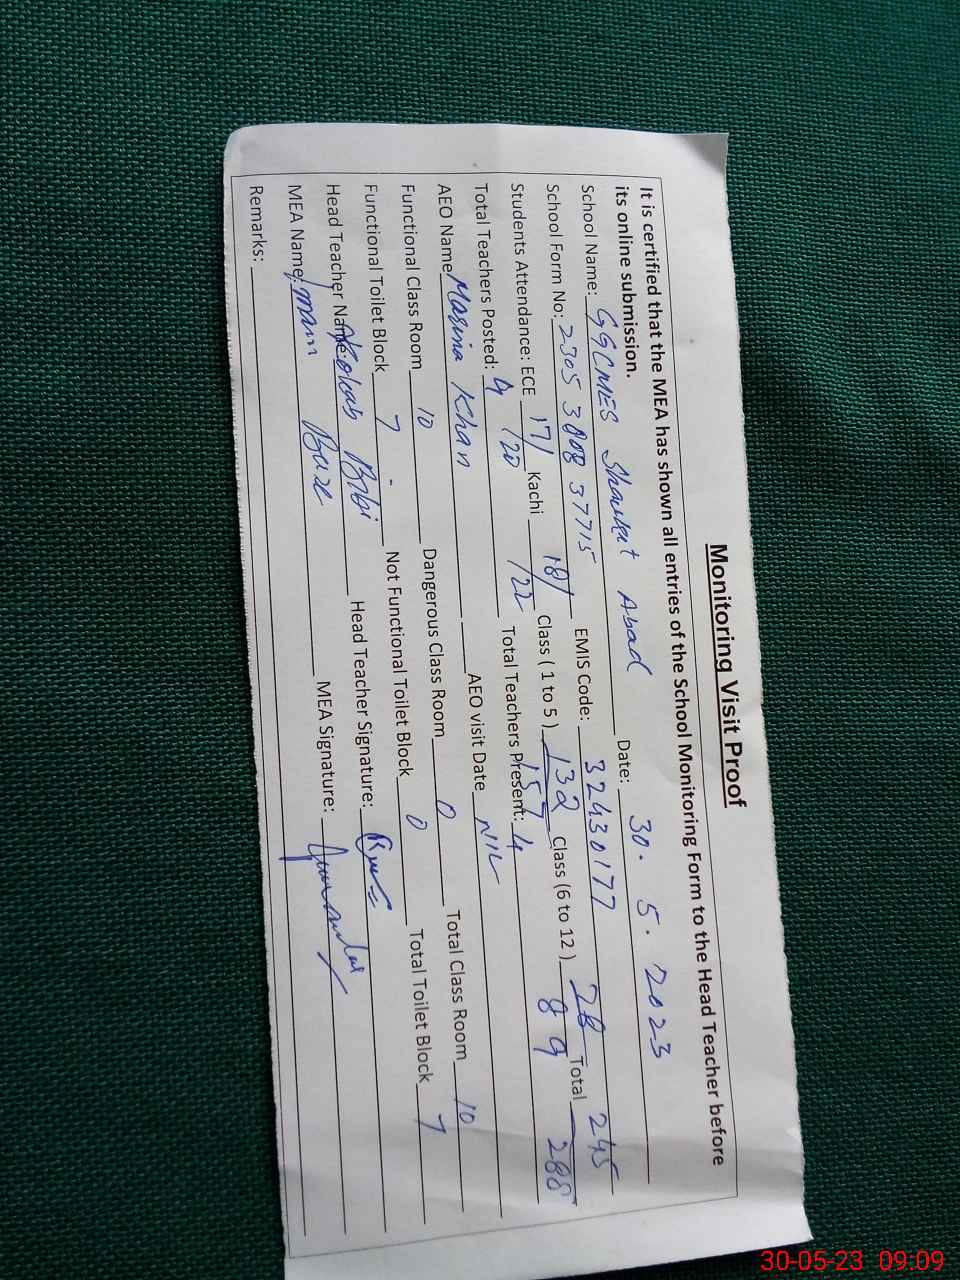 Monitoring Visit Proof
It is certified that the MEA has shown all entries of the School Monitoring Form to the Head Teacher before
its online submission.
School Name: GGCMES Shaukat Abad Date: 30.5.2023
School Form No: 2305 3008 37715 EMIS Code: 32430177
Students Attendance: ECE 17/20 Kachi 18/22 Class ( 1 to 5 ) 132/157 Class (6 to 12 ) 78/89 Total 245/288
Total Teachers Posted: 4 Total Teachers Present: 4
AEO Name Marina Khan AEO visit Date NIL
Functional Class Room 10 Dangerous Class Room 0 Total Class Room 10
Functional Toilet Block 7 Not Functional Toilet Block 0 Total Toilet Block 7
Head Teacher Name: Kokab Bibi Head Teacher Signature:
MEA Name: Imam MEA Signature:
Remarks:
30-05-23 09:09